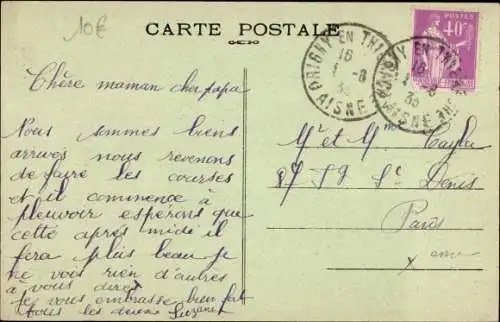 10€
CARTE POSTALE
POSTES
40c
ORIGNY EN THIERACHE
16
1 -8
35
AISNE
Chère maman cher papa
Nous sommes biens
arrivés nous revenons
de faire les courses
et il commence à
pleuvoir espérons que
cette après midi il
fera plus beau je
ne vous rien d'autres
à vous dire
je vous embrasse bien fort
tous les deux Suzanne
Mr et Mme
87 Fg St Denis
Paris
x eme